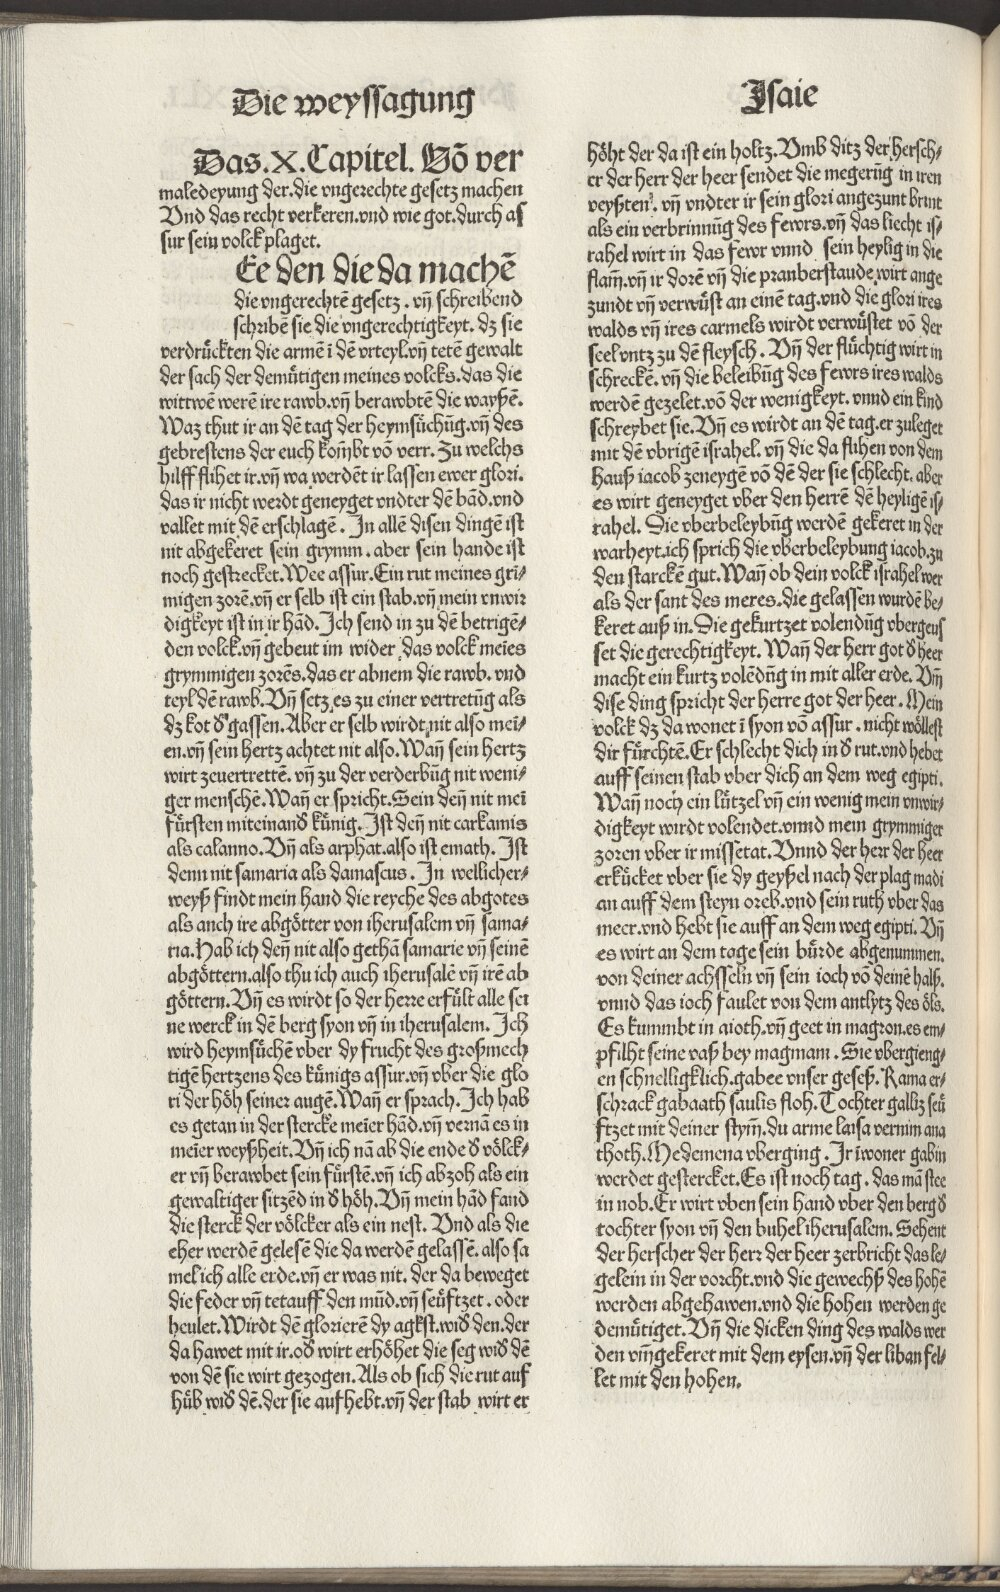 Die weyssagung
Das.X.Capitel. Võ ver
maledeyung der.die vngerechte gesetz machen
Vnd das recht verkeren.vnd wie got.durch as
sur sein volck plaget.
Ee den die da machẽ
die vngerechtẽ gesetz. vñ schreibend
schribẽ sie die vngerechtigkeyt. dz sie
verdrůckten die armẽ ĩ dẽ vrteyl.vñ tetẽ gewalt
der sach der demůtigen meines volcks.das die
wittwẽ werẽ ire rawb.vñ berawbtẽ die wayßẽ.
Waz thut ir an dẽ tag der heymsůchũg.vñ des
gebrestens der euch kom̃bt võ verr. Zu welchs
hilff flihet ir.vñ wa werdẽt ir lassen ewer glori.
das ir nicht werdt geneyget vndter dẽ bãd.vnd
vallet mit dẽ erschlagẽ. In allẽ disen dingẽ ist
nit abgekeret sein grymm.aber sein hande ist
noch gestrecket.Wee assur.Ein rut meines gri⸗
migen zorẽ.vñ er selb ist ein stab.vñ mein vnwir
digkeyt ist in ir hãd.Ich send in zu dẽ betrigẽ⸗
den volck.vñ gebeut im wider das volck meĩes
grymmigen zorẽs.das er abnem die rawb. vnd
teyl dẽ rawb. Vñ setz es zu einer vertretũg als
dz kot d̕ gassen.Aber er selb wirdt nit also mei⸗
en.vñ sein hertz achtet nit also.Wañ sein hertz
wirt zeuertrettẽ. vñ zu der verderbũg nit weni⸗
ger menschẽ.Wañ er spricht.Sein deñ nit mei
fůrsten miteinand̕ kůnig. Ist deñ nit carkamis
als calanno.Vñ als arphat.also ist emath. Ist
denn nit samaria als damascus. In wellicher⸗
weyß findt mein hand die reyche des abgotes
als auch ire abgötter von iherusalem vñ sama⸗
ria.Hab ich deñ nit also gethã samarie vñ seinẽ
abgöttern.also thu ich auch iherusalẽ vñ irẽ ab
göttern.Vñ es wirdt so der herre erfůlt alle sei
ne werck in dẽ berg syon vñ in iherusalem. Ich
wird heymsůchẽ vber dy frucht des großmech
tigẽ hertzens des kůnigs assur.vñ vber die glo
ri der höh seiner augẽ.Wañ er sprach.Ich hab
es getan in der stercke meĩer hãd.vñ vernã es in
meĩer weyßheit.Vñ ich nã ab die ende d̕ völck⸗
er vñ berawbet sein fůrstẽ.vñ ich abzoh als ein
gewaltiger sitzẽd in d̕ höh.Vñ mein hãd fand
die sterck der völcker als ein nest. Vnd als die
eher werdẽ gelesẽ die da werdẽ gelassẽ.also sa
mel ich alle erde.vñ er was nit. der da beweget
die feder vñ tet auff den mũd.vñ seůftzet.oder
heulet.Wirdt dẽ glorierẽ dy agkst.wid̕ den.der
da hawet mit ir.od̕ wirt erhöhet die seg wid̕ dẽ
von dẽ sie wirt gezogen.Als ob sich die rut auf
hůb wid̕ dẽ.der sie auf hebt.vñ der stab wirt er
Jsaie
höht der da ist ein holtz.Vmb ditz der hersch⸗
er der herr der heer sendet die megerũg in iren
veyßten. vñ vndter ir sein glori angezunt brint
als ein verbrinnũg des fewrs.vñ das liecht is⸗
rahel wirt in das fewr vnnd sein heylig in die
flam̃.vñ ir dorẽ vñ die pranberstaude wirt ange
zundt vñ verwůst an einẽ tag.vnd die glori ires
walds vñ ires carmels wirdt verwůstet võ der
seel vntz zu dẽ fleysch. Vñ der flůchtig wirt in
schreckẽ. vñ die beleibũg des fewrs ires walds
werdẽ gezelet.võ der wenigkeyt. vnnd ein kind
schreybet sie.Vñ es wirdt an dẽ tag.er zuleget
mit dẽ vbrigẽ israhel. vñ die da flihen von dem
hauß iacob zeneygẽ võ dẽ der sie schlecht. aber
es wirt geneyget vber den herrẽ dẽ heyligẽ is⸗
rahel. Die vberbeleybũg werdẽ gekeret in der
warheyt.ich sprich die vberbeleybung iacob.zu
den starckẽ gut.Wañ ob dein volck israhel wer
als der sant des meres.die gelassen wurdẽ be⸗
keret auß in.Die gekurtzet volendũg vbergeus
set die gerechtigkeyt. Wañ der herr got d̕ heer
macht ein kurtz volẽdũg in mit aller erde. Vñ
dise ding spricht der herre got der heer. Mein
volck dz da wonet ĩ syon võ assur. nicht wöllest
dir fůrchtẽ.Er schlecht dich in d̕ rut.vnd hebet
auff seinen stab vber dich an dem weg egipti.
Wañ noch ein lůtzel vñ ein wenig mein vnwir⸗
digkeyt wirdt volendet.vnnd mein grymmiger
zoren vber ir missetat.Vnnd der herr der heer
erkůcket vber sie dy geyßel nach der plag madi
an auff dem steyn oreb.vnd sein ruth vber das
meer.vnd hebt sie auff an dem weg egipti. Vñ
es wirt an dem tage sein bůrde abgenummen.
von deiner achsseln vñ sein ioch võ deinẽ halß.
vnnd das ioch faulet von dem antlytz des öls.
Es kummbt in aioth.vñ geet in magron.es em⸗
pfilht seine vaß bey magmam. Sie vbergieng⸗
en schnelligklich.gabee vnser geseß. Rama er⸗
schrack gabaath saulis floh.Tochter galliz seů
ftzet mit deiner stym̃.du arme laisa vernim ana
thoth.Medemena vberging. Ir ĩwoner gabin
werdet gestercket.Es ist noch tag. das mã stee
in nob.Er wirt vben sein hand vber den berg d̕
tochter syon vñ den buhel iherusalem. Sehent
der herscher der herr der heer zerbricht das le⸗
gelein in der vorcht.vnd die gewechß des hohẽ
werden abgehawen.vnd die hohen werden ge
demůtiget.Vñ die dicken ding des walds wer
den vm̃gekeret mit dem eysen.vñ der liban fel⸗
let mit den hohen.